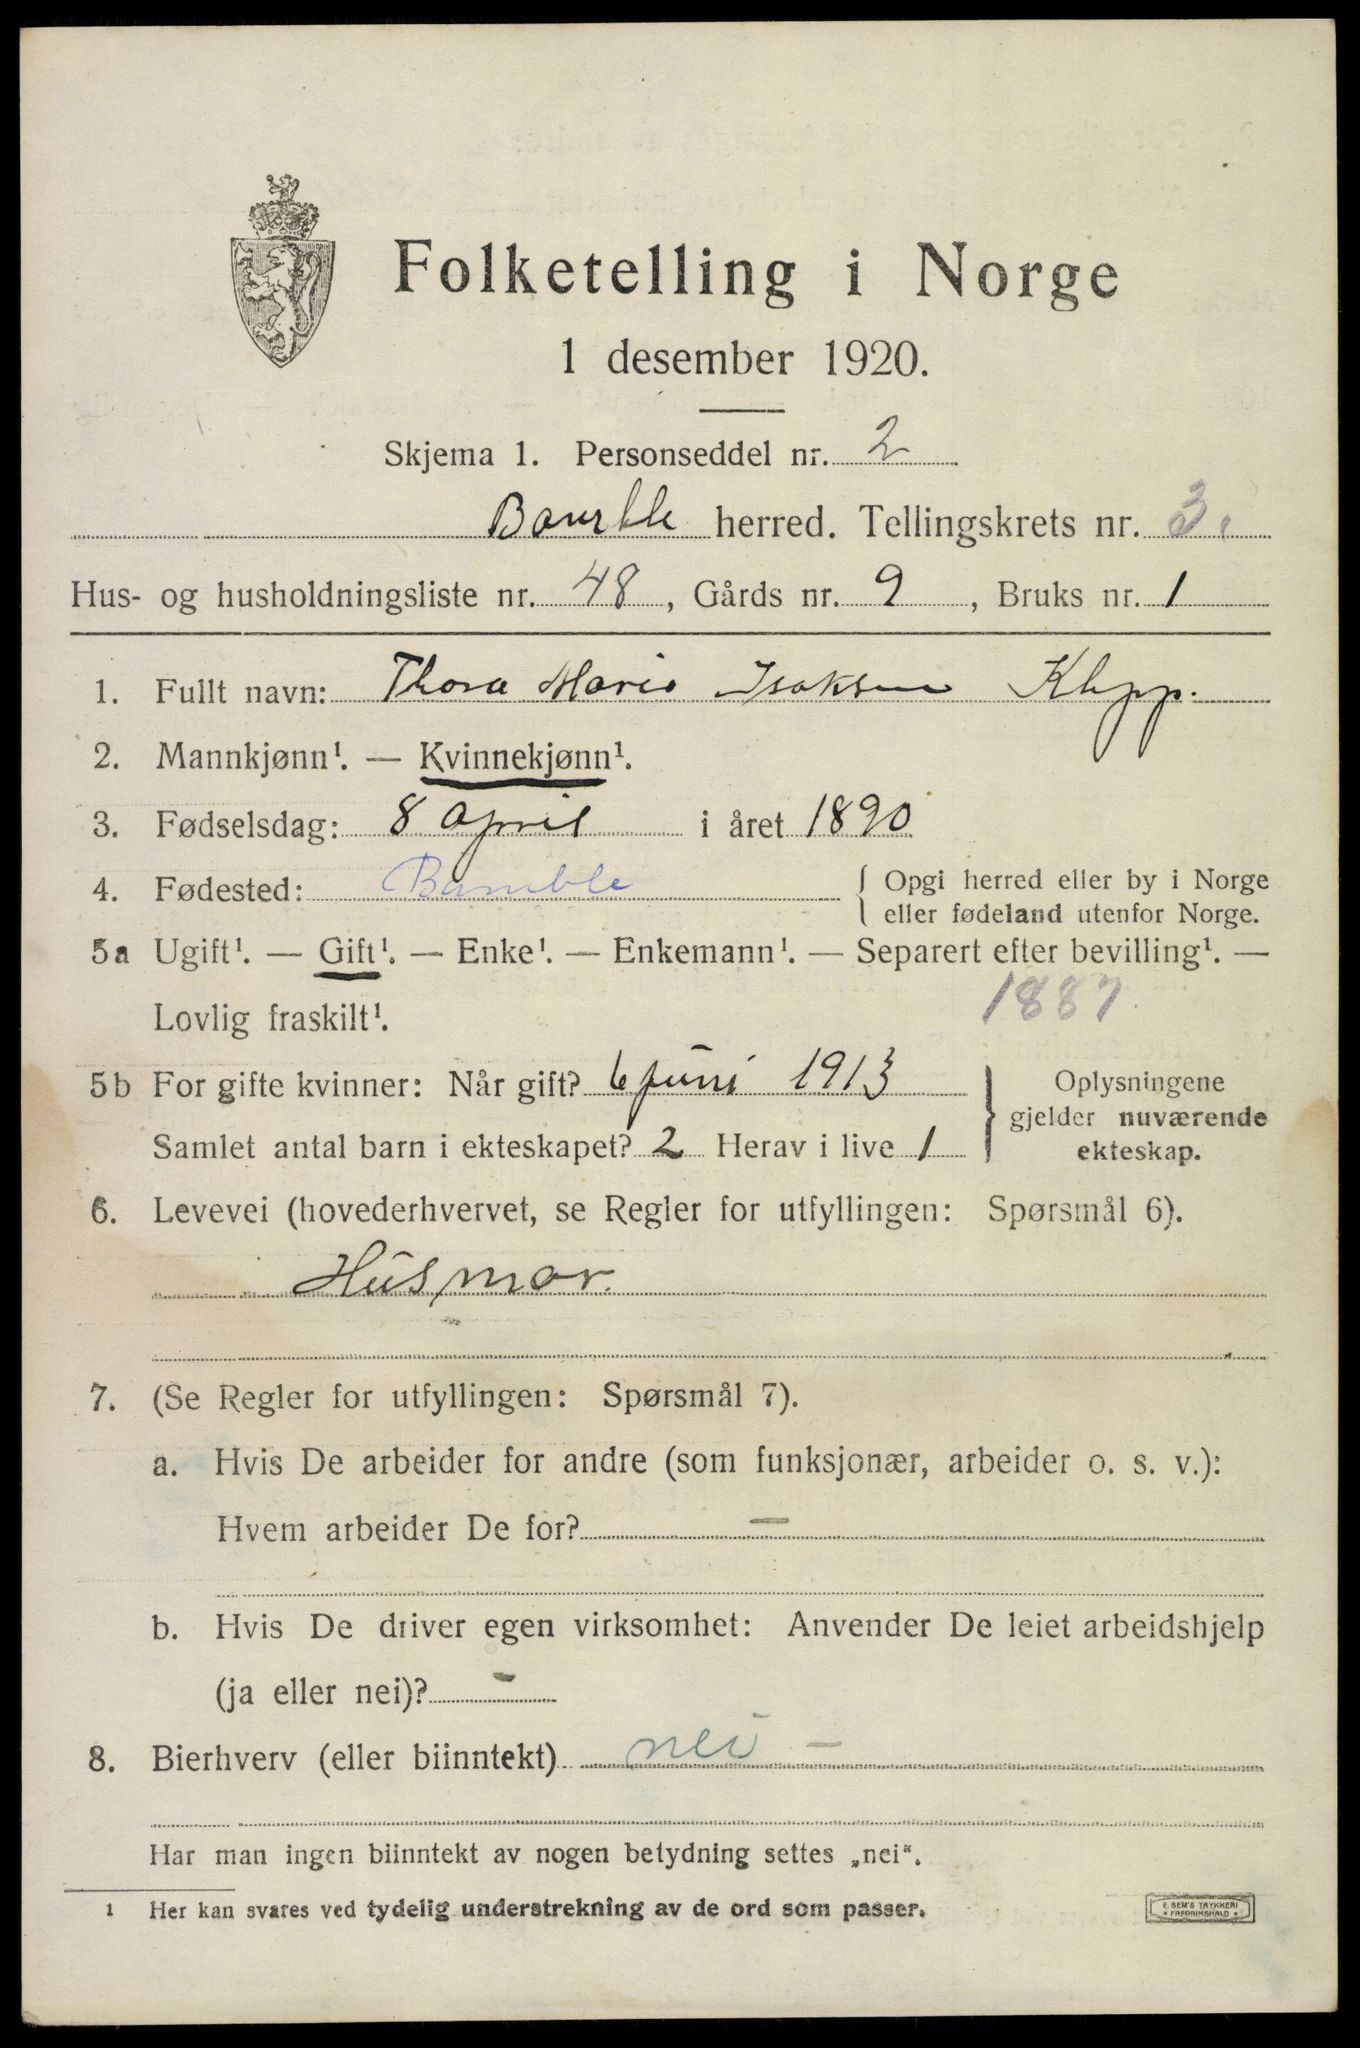 Folketelling i Norge
1 desember 1920.
Skjema 1. Personseddel nr. 2
Bamble herred. Tellingskrets nr. 3.
Hus- og husholdningsliste nr. 48, Gårds nr. 9, Bruks nr. 1
1. Fullt navn: Thora Marie Isaksen Klepp.
2. Mannkjønn¹. — Kvinnekjønn¹.
3. Fødselsdag: 8 april i året 1890
4. Fødested: Bamble { Opgi herred eller by i Norge
eller fødeland utenfor Norge.
5a Ugift¹. — Gift¹. — Enke¹. — Enkemann¹. — Separert efter bevilling¹. —
Lovlig fraskilt¹. 1887.
5b For gifte kvinner: Når gift? 6 juni 1913 } Oplysningene
gjelder nuværende
Samlet antal barn i ekteskapet? 2 Herav i live 1 ekteskap.
6. Levevei (hovederhvervet, se Regler for utfyllingen: Spørsmål 6).
Husmor.
7. (Se Regler for utfyllingen: Spørsmål 7).
a. Hvis De arbeider for andre (som funksjonær, arbeider o. s. v.):
Hvem arbeider De for? —
b. Hvis De driver egen virksomhet: Anvender De leiet arbeidshjelp
(ja eller nei)? -
8. Bierhverv (eller biinntekt) nei —
Har man ingen biinntekt av nogen betydning settes „nei“.
1 Her kan svares ved tydelig understrekning av de ord som passer.
E. SEM'S TRYKKERI
* FREDRIKSHALD *